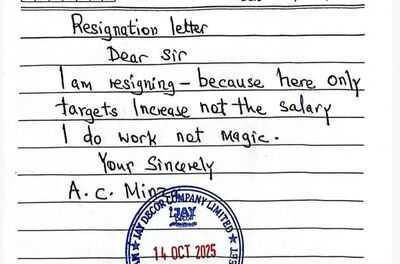 Resignation letter
Dear Sir
I am resigning - because here only
targets Increase not the salary
I do work not Magic.
Your Sincerely
A. C.
JAY DECOR COMPANY LIMITED
JAY
DECOR
14 OCT 2025